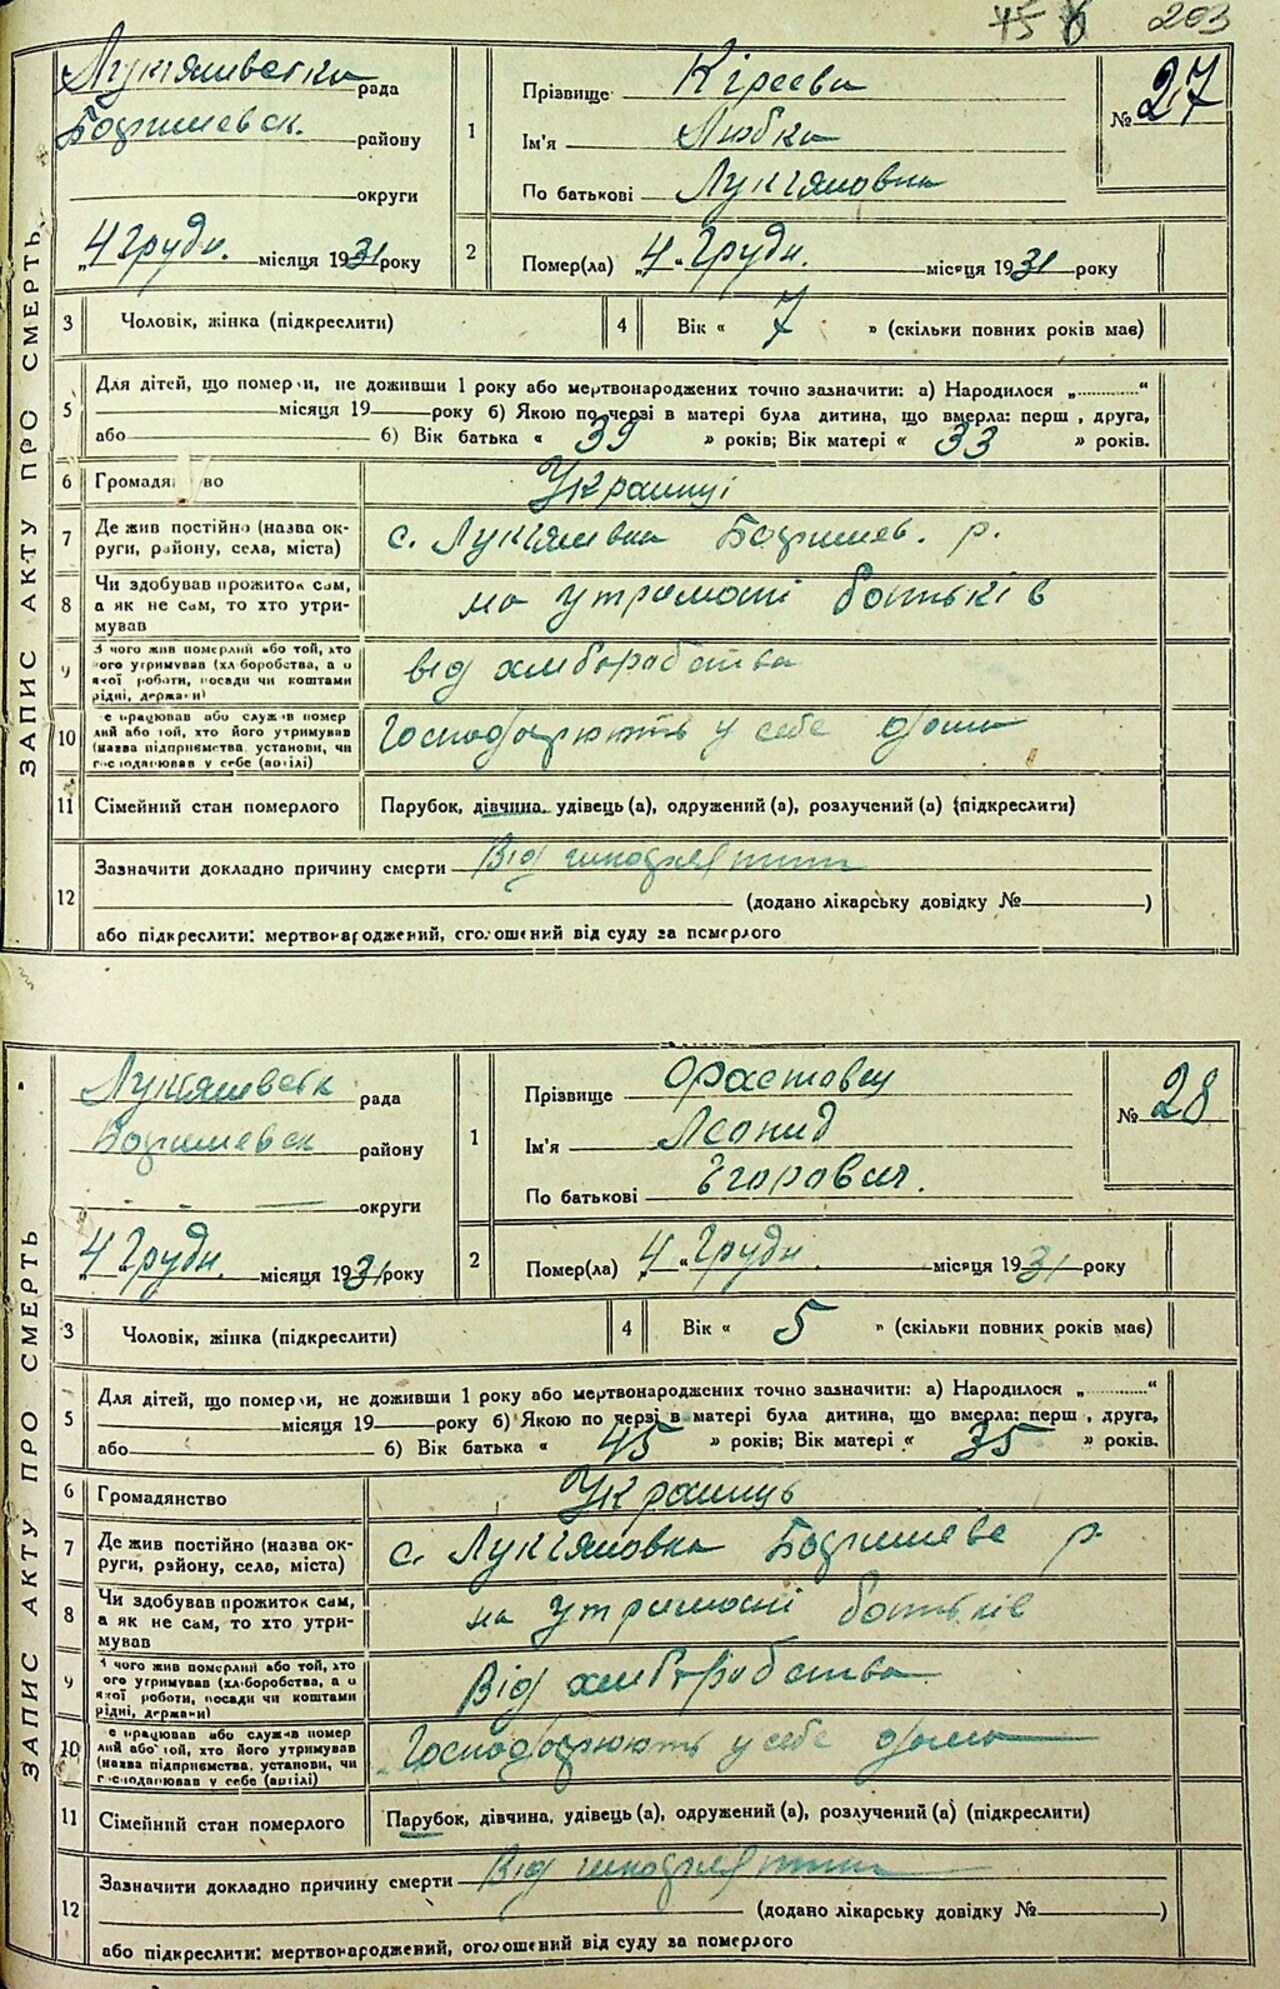 203
ЗАПИС АКТУ ПРО СМЕРТЬ
Лукіянівська рада
Боришевск. району
округи
„4 Грудн. місяця 1931 року
1
Прізвище Кіреева
Ім'я Любка
По батькові Лукіяновна
№ 27
2
Помер(ла) „4“ Грудн. місяця 1931 року
3 Чоловік, жінка (підкреслити)
4 Вік « 7 » (скільки повних років має)
5
Для дітей, що померли, не доживши 1 року або мертвонароджених точно зазначити: а) Народилося „............“
місяця 19 року б) Якою по черзі в матері була дитина, що вмерла: перш , друга,
або б) Вік батька « 39 » років; Вік матері « 33 » років.
6 Громадянство Украинці
7 Де жив постійно (назва ок-
руги, району, села, міста)
с. Лукіянивка Боришев. р.
8 Чи здобував прожиток сам,
а як не сам, то хто утри-
мував
на утримані батьків
9 З чого жив померлий або той, хто
його утримував (хліборобства, а о
якої роботи, посади чи коштами
рідні, держави)
від хліборобства
10 е працював або служив помер
лий або той, хто його утримував
(назва підприємства, установи, чи
господарював у себе (артілі)
Господарюють у себе дома
11 Сімейний стан померлого Парубок, дівчина, удівець (а), одружений (а), розлучений (а) (підкреслити)
12
Зазначити докладно причину смерти Від
(додано лікарську довідку № )
або підкреслити: мертвонароджений, оголошений від суду за померлого
ЗАПИС АКТУ ПРО СМЕРТЬ
Лукіянівськ рада
Боришевск району
округи
„4 Грудн. місяця 1931 року
1
Прізвище
Ім'я Леонид
По батькові Егорович.
№ 28
2
Помер(ла) „4“ Грудн. місяця 1931 року
3 Чоловік, жінка (підкреслити)
4 Вік « 5 » (скільки повних років має)
5
Для дітей, що померли, не доживши 1 року або мертвонароджених точно зазначити: а) Народилося „............“
місяця 19 року б) Якою по черзі в матері була дитина, що вмерла: перш , друга,
або б) Вік батька « 45 » років; Вік матері « 35 » років.
6 Громадянство Украинць
7 Де жив постійно (назва ок-
руги, району, села, міста)
с. Лукіяновка Боришеве р.
8 Чи здобував прожиток сам,
а як не сам, то хто утри-
мував
на утримані батьків
9 чого жив померлий або той, хто
ого утримував (хліборобства, а о
якої роботи, посади чи коштами
рідні, держави)
Від хліборобства
10 е працював або служив помер
лий або той, хто його утримував
(назва підприємства, установи, чи
господарював у себе (артілі)
Господарюють у себе дома
11 Сімейний стан померлого Парубок, дівчина, удівець (а), одружений (а), розлучений (а) (підкреслити)
12
Зазначити докладно причину смерти Від
(додано лікарську довідку № )
або підкреслити: мертвонароджений, оголошений від суду за померлого